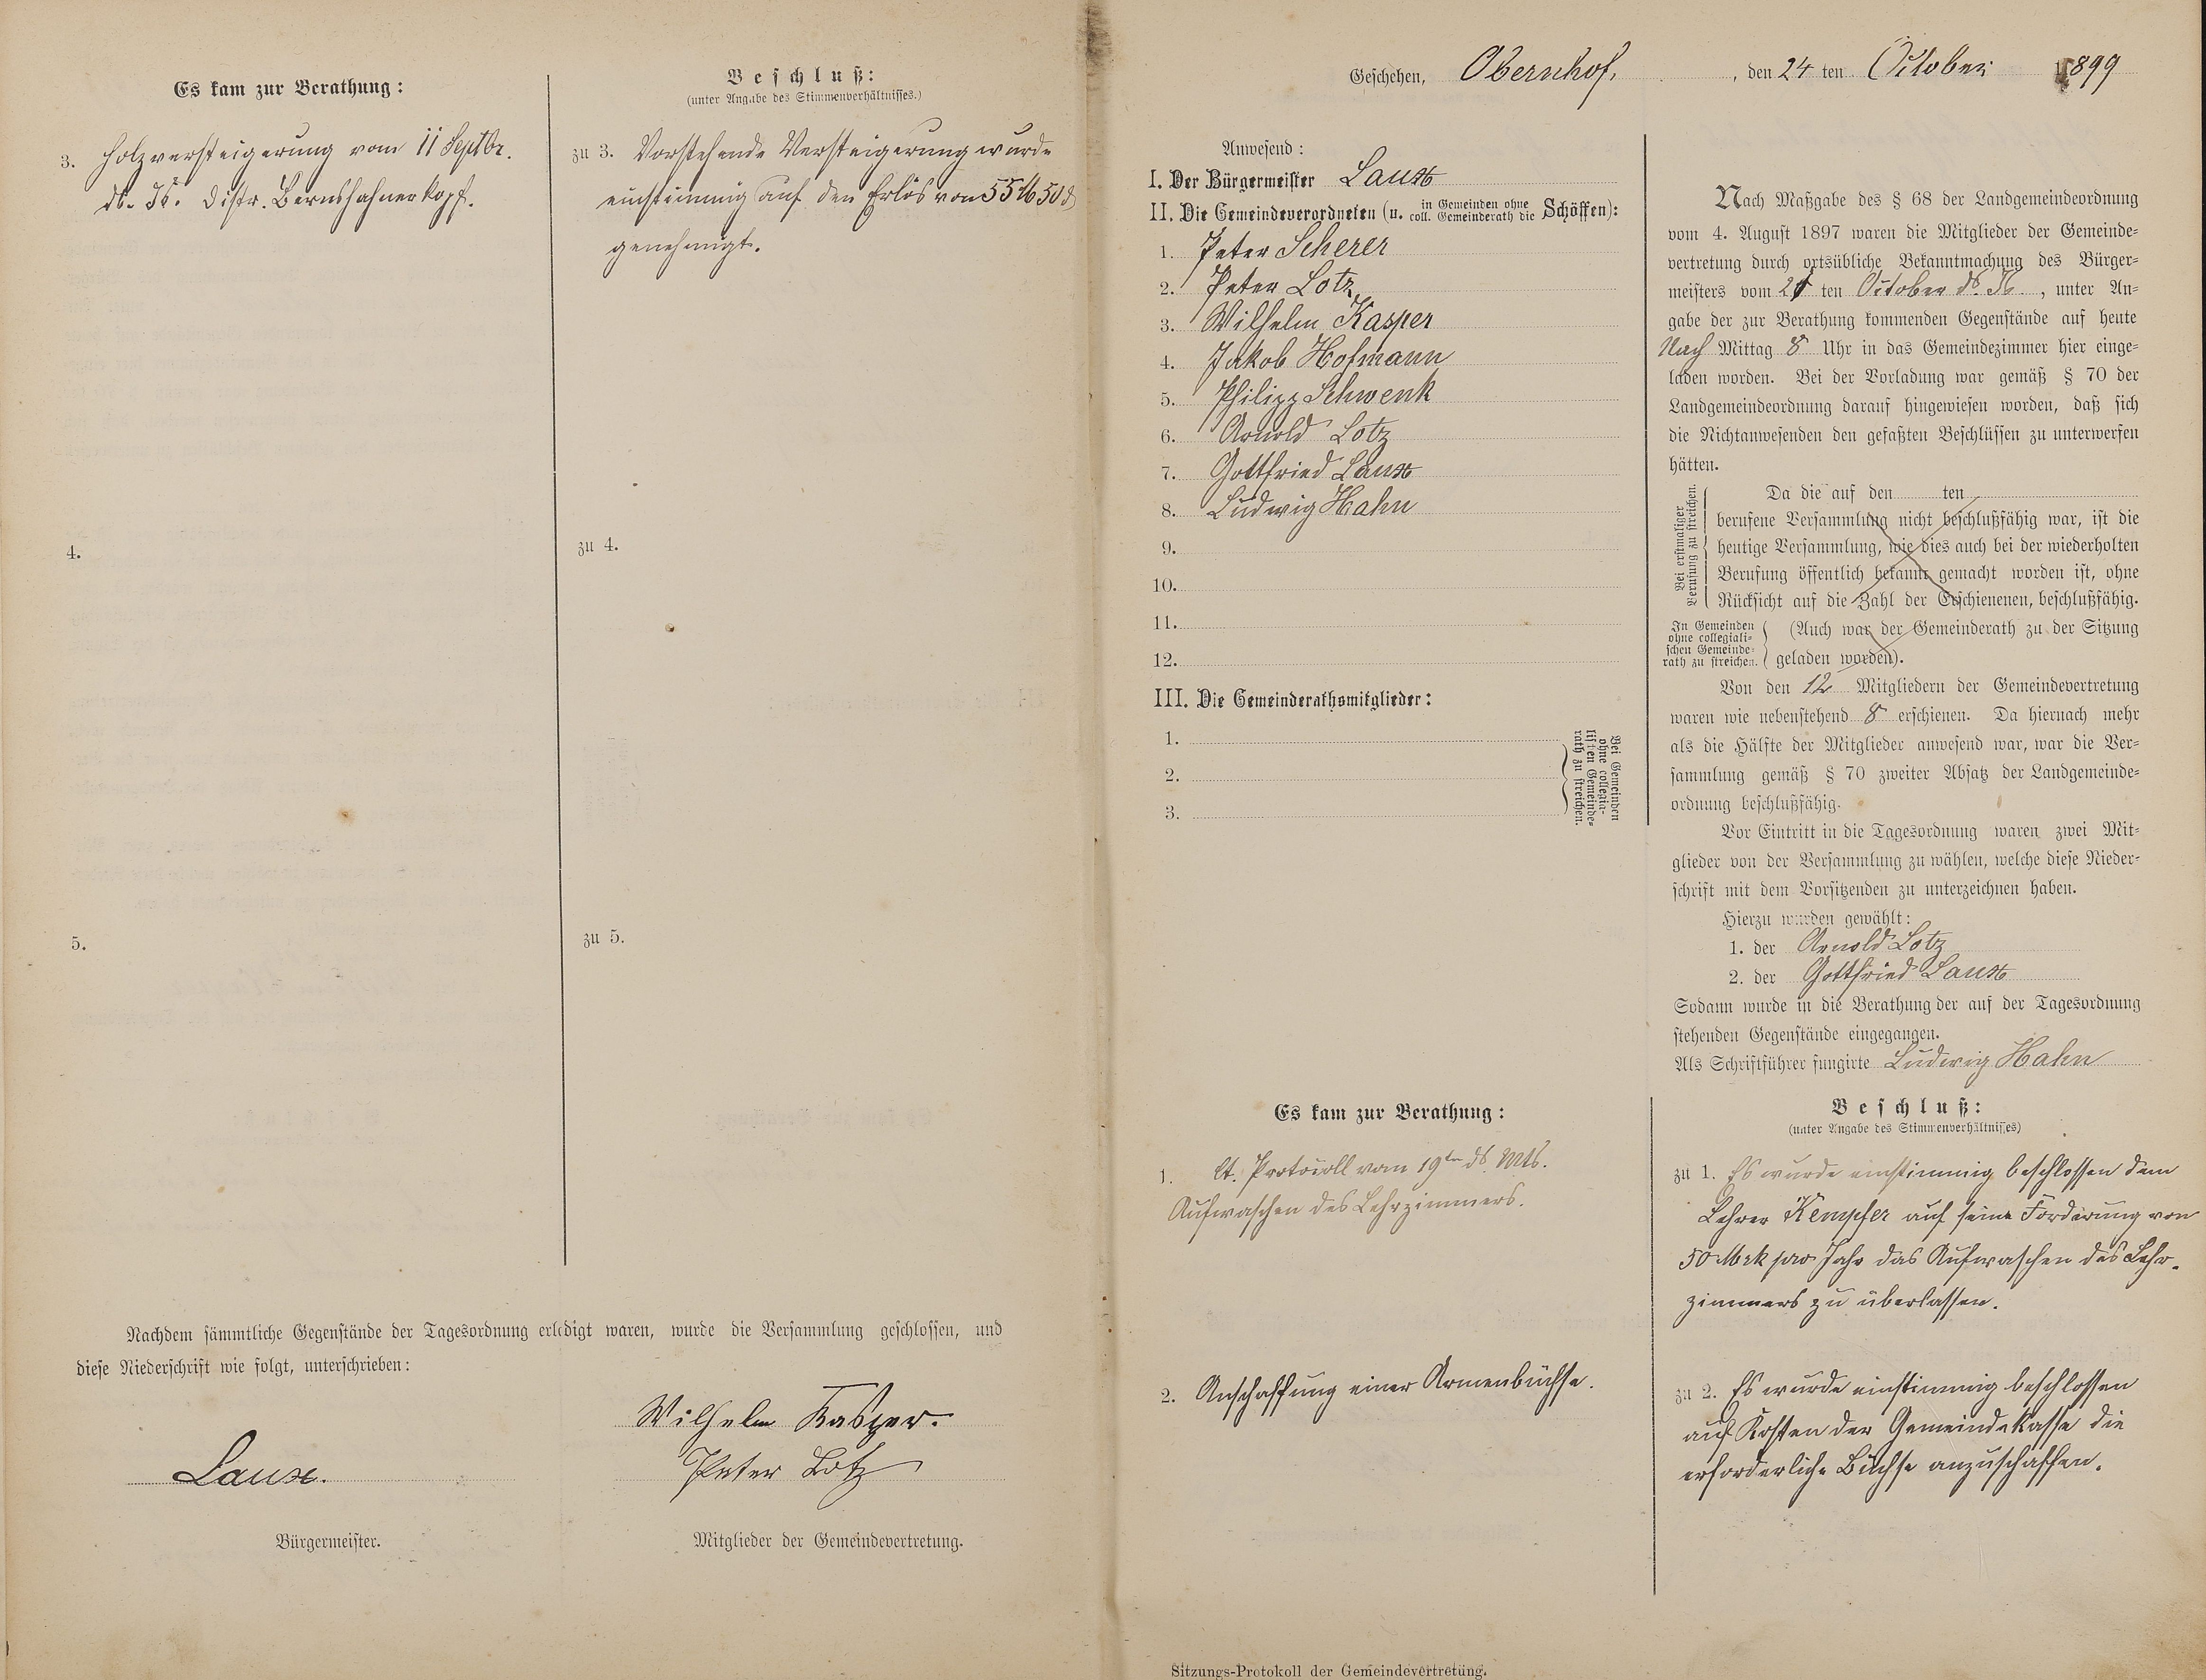 Es kam zur Berathung:
3. Holzversteigerung vom 11 Septbr.
ds. Js. Distr. Bernshahnerkopf.
4.
5.
Beschluß:
(unter Angabe des Stimmenverhältnisses.)
zu 3. Vorstehende Versteigerung wurde
einstimmig auf den Erlös von 55 M 50 d
genehmigt.
zu 4.
zu 5.
Nachdem sämmtliche Gegenstände der Tagesordnung erledigt waren, wurde die Versammlung geschlossen, und
diese Niederschrift wie folgt, unterschrieben:
Laux.
Bürgermeister.
Wilhelm Kasper.
Peter Lotz
Mitglieder der Gemeindevertretung.
Geschehen, Obernhof, , den 24 ten October 1899
Anwesend:
I. Der Bürgermeister Laux
II. Die Gemeindeverordneten (u. in Gemeinden ohne coll. Gemeinderath die Schöffen):
1. Peter Scherer
2. Peter Lotz
3. Wilhelm Kasper
4. Jakob Hofmann
5. Philipp Schwenk
6. Arnold Lotz
7. Gottfried Laux
8. Ludwig Hahn
9.
10.
11.
12.
III. Die Gemeinderathsmitglieder:
1.
2.
3.
Bei Gemeinden
ohne collegia-
lischen Gemeinde-
rath zu streichen.
Nach Maßgabe des § 68 der Landgemeindeordnung
vom 4. August 1897 waren die Mitglieder der Gemeinde-
vertretung durch ortsübliche Bekanntmachung des Bürger-
meisters vom 21 ten October ds. Js , unter An-
gabe der zur Berathung kommenden Gegenstände auf heute
Nach Mittag 8 Uhr in das Gemeindezimmer hier einge-
laden worden. Bei der Vorladung war gemäß § 70 der
Landgemeindeordnung darauf hingewiesen worden, daß sich
die Nichtanwesenden den gefaßten Beschlüssen zu unterwerfen
hätten.
Bei erstmaliger
Berufung zu streichen.
Da die auf den ten
berufene Versammlung nicht beschlußfähig war, ist die
heutige Versammlung, wie dies auch bei der wiederholten
Berufung öffentlich bekannt gemacht worden ist, ohne
Rücksicht auf die Zahl der Erschienenen, beschlußfähig.
In Gemeinden
ohne collegiali-
schen Gemeinde-
rath zu streichen.
(Auch war der Gemeinderath zu der Sitzung
geladen worden).
Von den 12 Mitgliedern der Gemeindevertretung
waren wie nebenstehend 8 erschienen. Da hiernach mehr
als die Hälfte der Mitglieder anwesend war, war die Ver-
sammlung gemäß § 70 zweiter Absatz der Landgemeinde-
ordnung beschlußfähig.
Vor Eintritt in die Tagesordnung waren zwei Mit-
glieder von der Versammlung zu wählen, welche diese Nieder-
schrift mit dem Vorsitzenden zu unterzeichnen haben.
Hierzu wurden gewählt:
1. der Arnold Lotz
2. der Gottfried Laux
Sodann wurde in die Berathung der auf der Tagesordnung
stehenden Gegenstände eingegangen.
Als Schriftführer fungirte Ludwig Hahn
Es kam zur Berathung:
1. lt. Protocoll vom 19ten ds. Mts.
Aufwaschen des Lehrzimmers.
2. Anschaffung einer Armenbüchse.
Beschluß:
(unter Angabe des Stimmenverhältnisses)
zu 1. Es wurde einstimmig beschlossen dem
Lehrer Kempfer auf seine Forderung von
50 Mrk pro Jahr das Aufwaschen des Lehr-
zimmers zu überlassen.
zu 2. Es wurde einstimmig beschlossen
auf Kosten der Gemeindekasse die
erforderliche Büchse anzuschaffen.
Sitzungs-Protokoll der Gemeindevertretung.